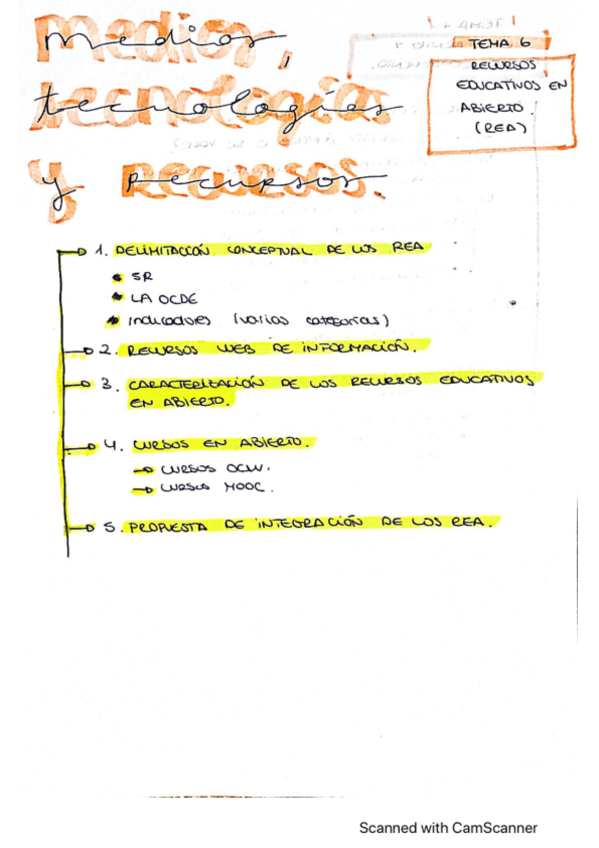 medios,
tecnologías
y recursos.
TEMA 6
RECURSOS
EDUCATIVOS EN
ABIERTO.
(REA)
1. DELIMITACCIÓN CONCEPTUAL DE LOS REA
SR
LA OCDE
Indicadores (varias categorías)
2. RECURSOS WEB DE INFORMACIÓN.
3. CARACTERIZACIÓN DE LOS RECURSOS EDUCATIVOS
EN ABIERTO.
4. CURSOS EN ABIERTO.
CURSOS OCW.
CURSOS MOOC.
5. PROPUESTA DE INTEGRACIÓN DE LOS REA.
Scanned with CamScanner